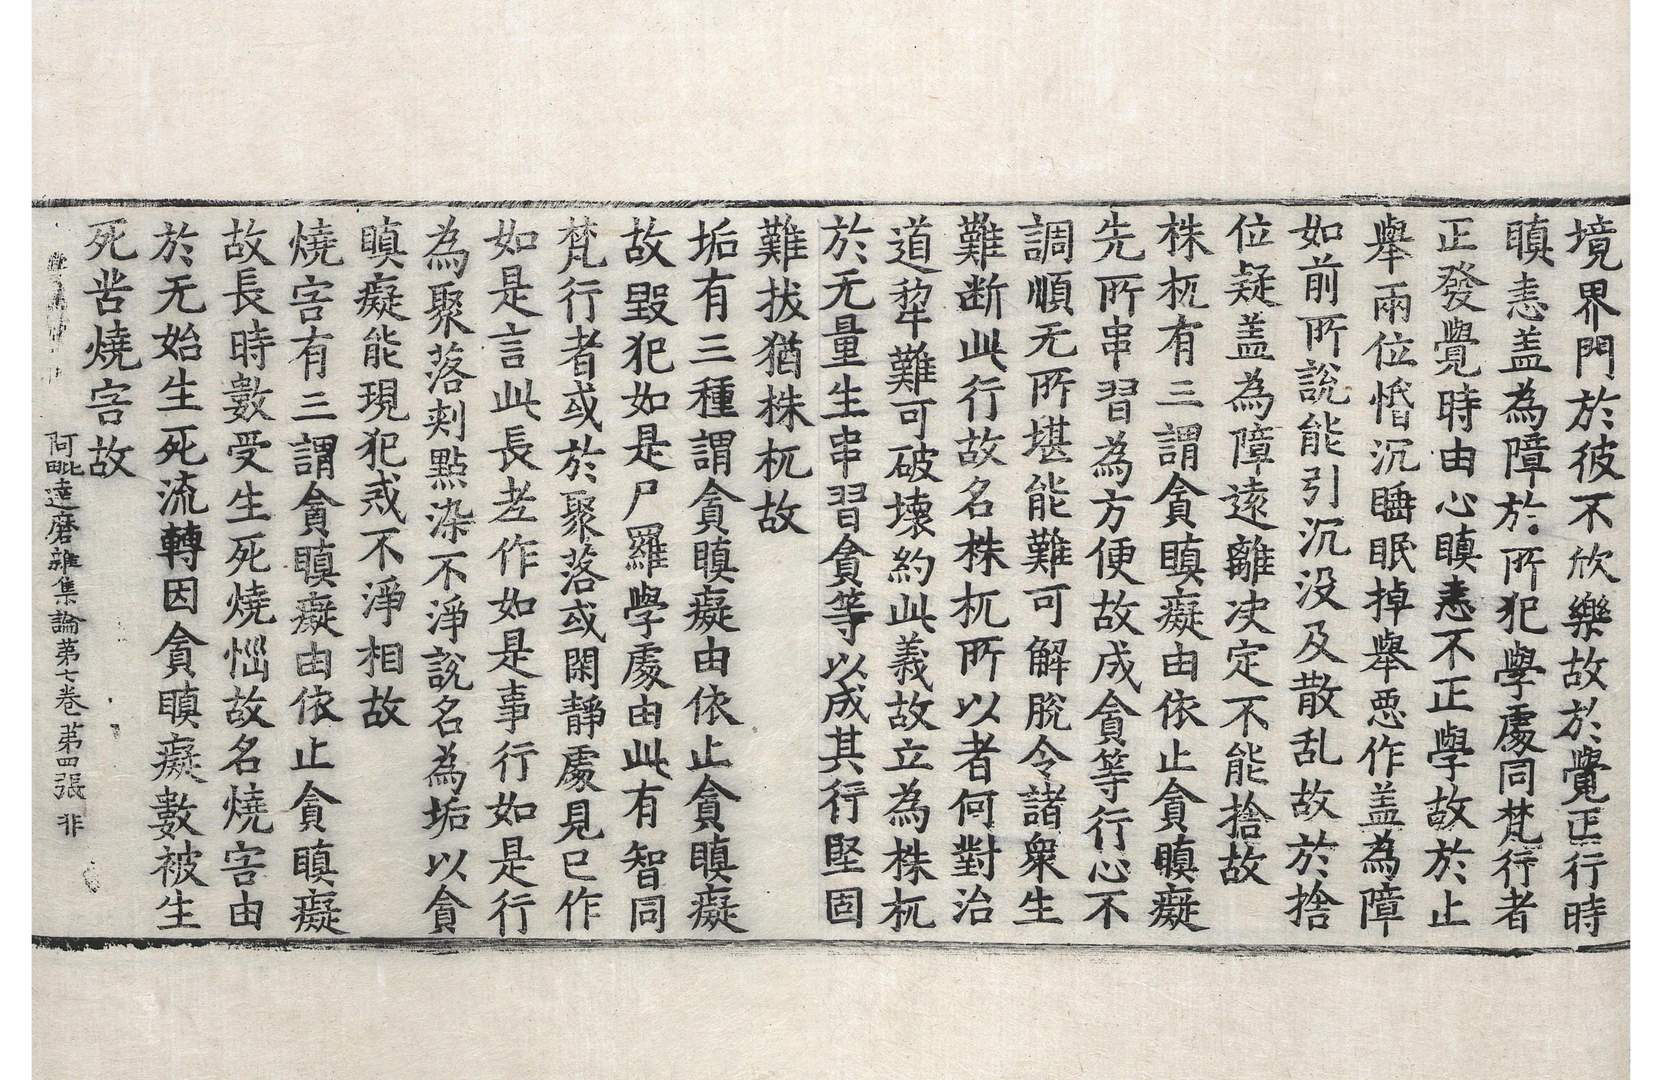 境界門於彼不欣樂故於覺正行時
瞋恚盖為障於所犯學處同梵行者
正發覺時由心瞋恚不正學故於止
舉兩位惛沉睡眠掉舉悪作盖為障
如前所說能引沉没及散乱故於捨
位疑盖為障遠離决定不能捨故
株杌有三謂貪瞋癡由依止貪瞋癡
先所串習為方便故成貪等行心不
調順无所堪能難可解脫令諸衆生
難断此行故名株杌所以者何對治
道犂難可破壞約此義故立為株杌
於无量生串習貪等以成其行堅固
難拔猶株杌故
垢有三種謂貪瞋癡由依止貪瞋癡
故毀犯如是尸羅學處由此有智同
梵行者或於聚落或閑靜處見已作
如是言此長老作如是事行如是行
為聚落刾點染不淨說名為垢以貪
瞋癡能現犯戒不淨相故
燒害有三謂貪瞋癡由依止貪瞋癡
故長時數受生死燒惱故名燒害由
於无始生死流轉因貪瞋癡數被生
死苦燒害故
阿毗達磨雜集論第七卷 第四張 非